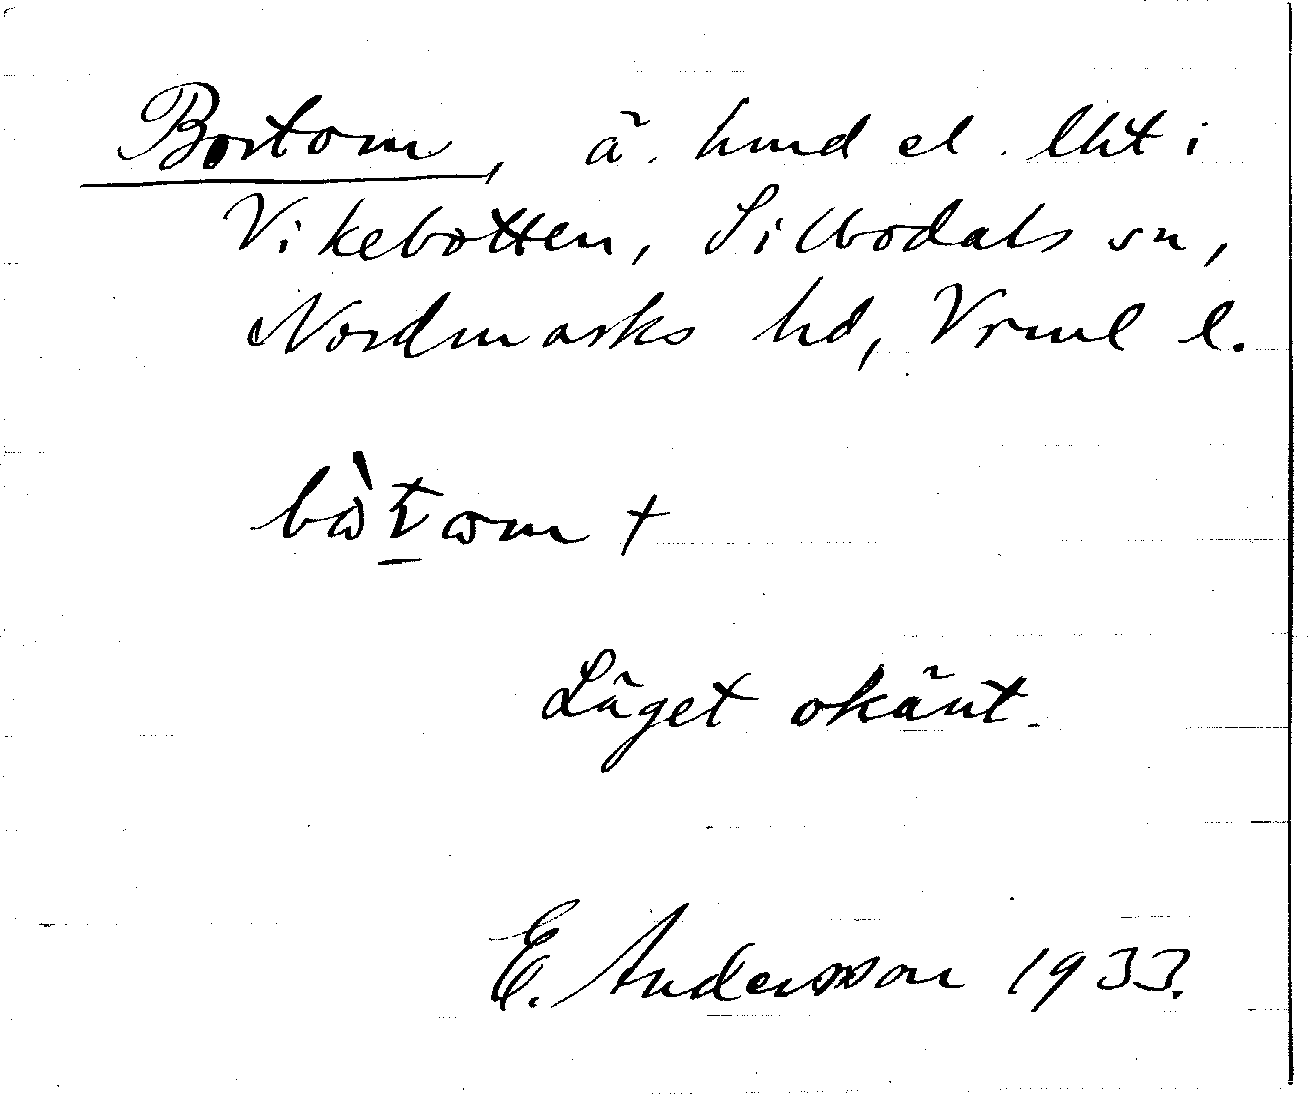 Bortom, ä. hmd el. lht i
Vikebotten, Silbodals sn,
Nordmarks hd, Vrml l.
bὼt̲ωm +
Läget okänt.
E. Andersson 1933.